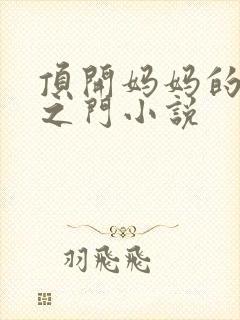 頂開妈妈的
之門小說
羽飛飛